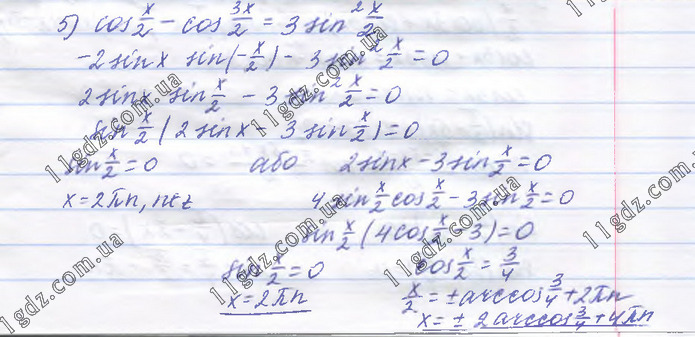 5) cos x/2 - cos 3x/2 = 3 sin² x/2
-2 sin x sin(-x/2) - 3 sin² x/2 = 0
2 sin x sin x/2 - 3 sin² x/2 = 0
sin x/2 (2 sin x - 3 sin x/2) = 0
sin x/2 = 0 або 2 sin x - 3 sin x/2 = 0
x = 2πn, n∈z 4 sin x/2 cos x/2 - 3 sin x/2 = 0
sin x/2 (4 cos x/2 - 3) = 0
sin x/2 = 0 cos x/2 = 3/4
x = 2πn x/2 = ± arccos 3/4 + 2πn
x = ± 2 arccos 3/4 + 4πn
11gdz.com.ua
11gdz.com.ua
11gdz.com.ua
11gdz.com.ua
11gdz.com.ua
11gdz.com.ua
11gdz.com.ua